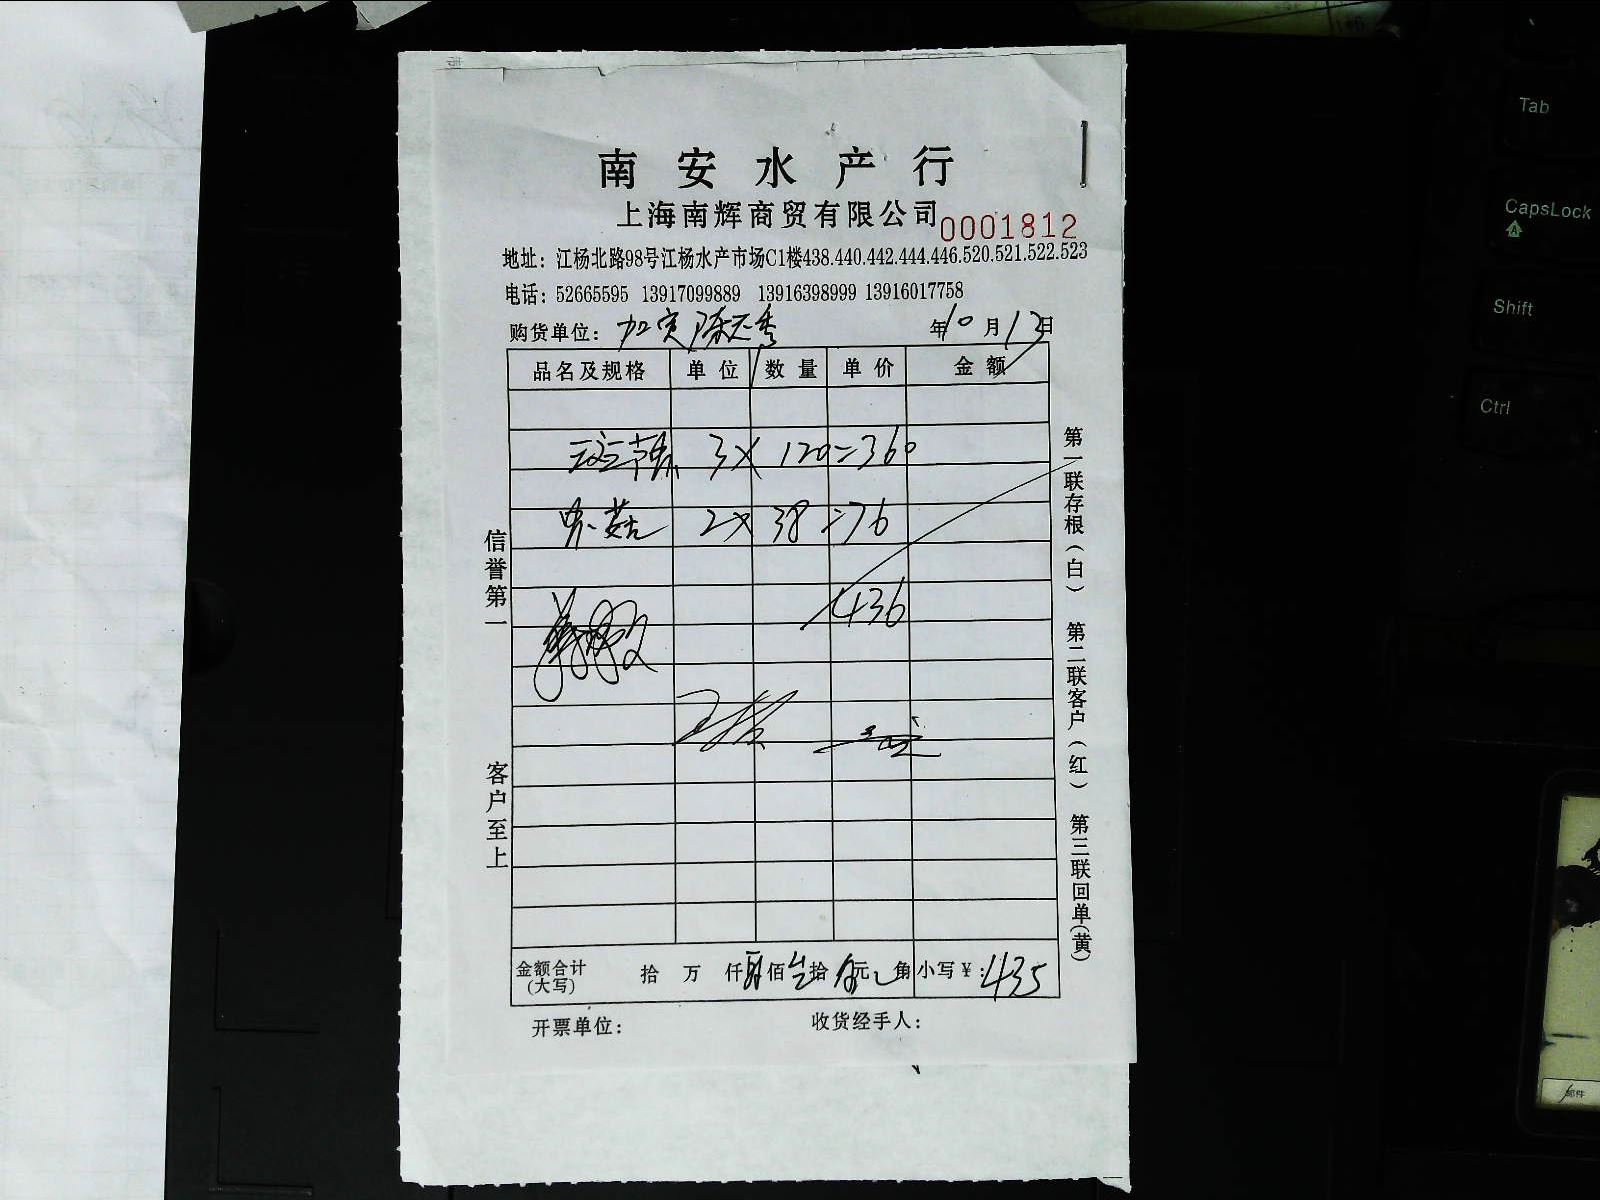 南安水产行
上海南辉商贸有限公司 0001812
地址：江杨北路98号江杨水产市场C1楼438.440.442.444.446.520.521.522.523
电话：52665595 13917099889 13916398999 13916017758
购货单位： 年10月13日
品名及规格 单位 数量 单价 金额
斑节 3× 120=360
菇 2× 38=76
436
金额合计(大写) 拾 万 仟 佰 拾 元 角 小写￥：435
开票单位： 收货经手人：
信誉第一
客户至上
第一联存根(白) 第二联客户(红) 第三联回单(黄)
Tab
CapsLock
A
Shift
Ctrl
邮件